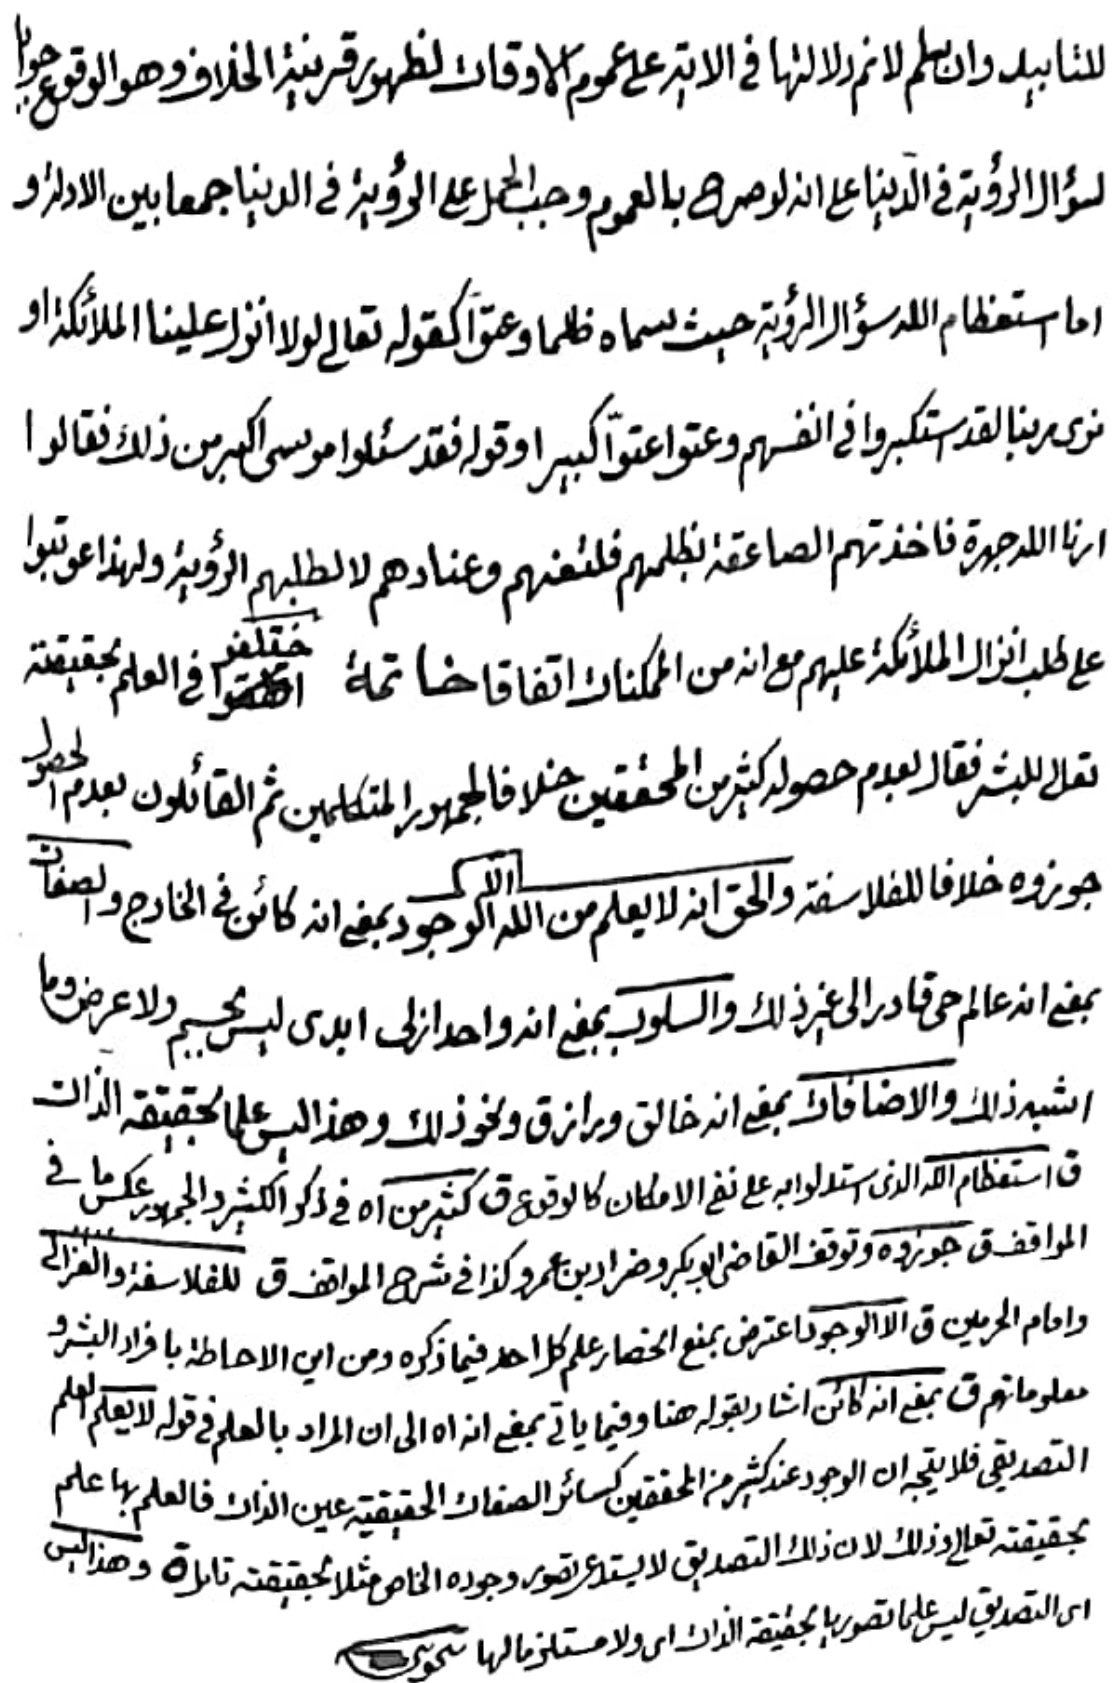 للتابيد وان سلم لانم دلالتها في الاية على عموم الاوقات لظهور قرينة الخلاف وهو الوقوع جوابا
لسؤال الرؤية في الدنيا على انه لو صرح بالعموم وجب الحمل على الرؤية في الدنيا جمعا بين الادلة و
اما استعظام الله سؤال الرؤية حيث سماه ظلما وعتوّا كقوله تعالى لولا انزل علينا الملائكة او
نرى ربنا لقد استكبروا في انفسهم وعتوا عتوّا كبيرا وقوله فقد سئلوا موسى اكبر من ذلك فقالوا
ارنا الله جهرة فاخذتهم الصاعقة بظلمهم فلتعنتهم وعنادهم لا لطلبهم الرؤية ولهذا عوتبوا
على طلب انزال الملائكة عليهم مع انه من الممكنات اتفاقا خاتمة اختلفوا في العلم بحقيقته
تعالى للبشر فقال بعدم حصوله كثير من المحققين خلافا لجمهور المتكلمين ثم القائلون بعدم الحصول
جوزوه خلافا للفلاسفة والحق انه لا يعلم من الله الا الوجود بمعنى انه كائن في الخارج والصفات
بمعنى انه عالم حي قادر الى غير ذلك والسلوب بمعنى انه واحد ازلي ابدي ليس بجسم ولا عرض وما
اشبه ذلك والاضافات بمعنى انه خالق ورازق ونحو ذلك وهذا ليس علما بحقيقة الذات
ق استعظام الله الذي استدلوا به على نفي الامكان كالوقوع ق كثير من اه في ذكر الكثير والجمهور عكس ما في
المواقف ق جوزوه وتوقف القاضي ابو بكر وضرار بن عمرو كذا في شرح المواقف ق للفلاسفة والغزالي
وامام الحرمين ق الا الوجود اعترض بمنع انحصار علم كل احد فيما ذكره ومن اين الاحاطة بافراد البشر و
معلوماتهم ق بمعنى انه كائن اشار بقوله هنا وفيما ياتي بمعنى انه اه الى ان المراد بالعلم في قوله لا يعلم العلم
التصديقي فلا يتجه ان الوجود عند كثير من المحققين كسائر الصفات الحقيقية عين الذات فالعلم بها علم
بحقيقته تعالى وذلك لان ذلك التصديق لا يستدعي تصور وجوده الخاص مثلا بحقيقته تامل ق وهذا ليس
اي التصديق ليس علما تصوريا بحقيقة الذات اي ولا مستلزما لها